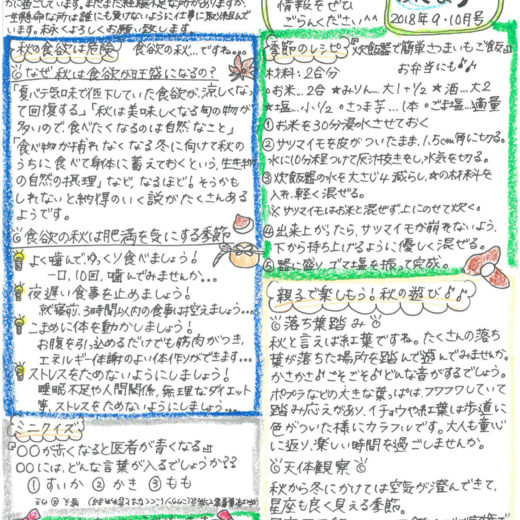 が過ごしています。まだまだ経験不足な所がありますが、
一生懸命な所は誰にも負けないように仕事に取り組んで
います。末永くよろしくお願い致します。
秋の食欲は危険 食欲の秋…ですね…
◎なぜ秋は食欲が旺盛になるの?
「夏バテ気味で低下していた食欲が、涼しくなっ
て回復する」「秋は美味しくなる旬の物が
多いので、食べたくなるのは自然なこと」
「食べ物が採れなくなる冬に向けて秋の
うちに食べて身体に蓄えておくという、生き物
の自然の摂理」など、なるほど!そうかも
しれないと納得のいく説がたくさんある
ようです。
◎食欲の秋は肥満を気にする季節
よく噛んでゆっくり食べましょう!
一口、10回、噛んでみませんか…
夜遅い食事を止めましょう!
就寝前、3時間以内の食事は控えましょう…
こまめに体を動かしましょう!
お腹を引っ込めるだけでも筋肉がつき、
エネルギー代謝のよい体作りができます…
ストレスをためないようにしましょう!
睡眠不足や人間関係、無理なダイエット
等、ストレスをためないようにしましょう…
ミニクイズ
〇〇が赤くなると医者が青くなる
〇〇には、どんな言葉が入るでしょうか??
①すいか ②かき ③もも
情報をぜひ
ごらんください^^
2018年9・10月号
季節のレシピ 炊飯器で簡単さつまいもご飯
お弁当にも♪
材料:2合分
・お米…2合 ★みりん…大1+1/2 ★酒…大2
★塩…小1/2 ・さつま芋…1本 ・ごま塩…適量
①お米を30分浸水させておく
②サツマイモを皮がついたまま、1.5cm角に切る。
水に10分程つけて灰汁抜きをし、水気を切る。
③炊飯器の水を大さじ4減らし、★の材料を
入れ、軽く混ぜる。
※サツマイモはお米と混ぜず上にのせて炊く。
④出来上がったら、サツマイモが崩れないよう、
下から持ち上げるように優しく混ぜる。
⑤器に盛り、ゴマ塩を振って完成。
親子で楽しもう!秋の遊び♪♪
◎落ち葉踏み◎
秋と言えば紅葉ですね。たくさんの落ち
葉が落ちた場所を踏んで遊んでみませんか。
かさかさ♪ごそごそ♪どんな音がするでしょう。
ポプラなどの大きな葉っぱは、フワフワしていて
踏み応えがあり、イチョウや紅葉は歩道に
色がついた様にカラフルです。大人も童心
に返り、楽しい時間を過ごしませんか。
◎天体観察◎
秋から冬にかけては空気が澄んできて、
星座も良く見える季節。